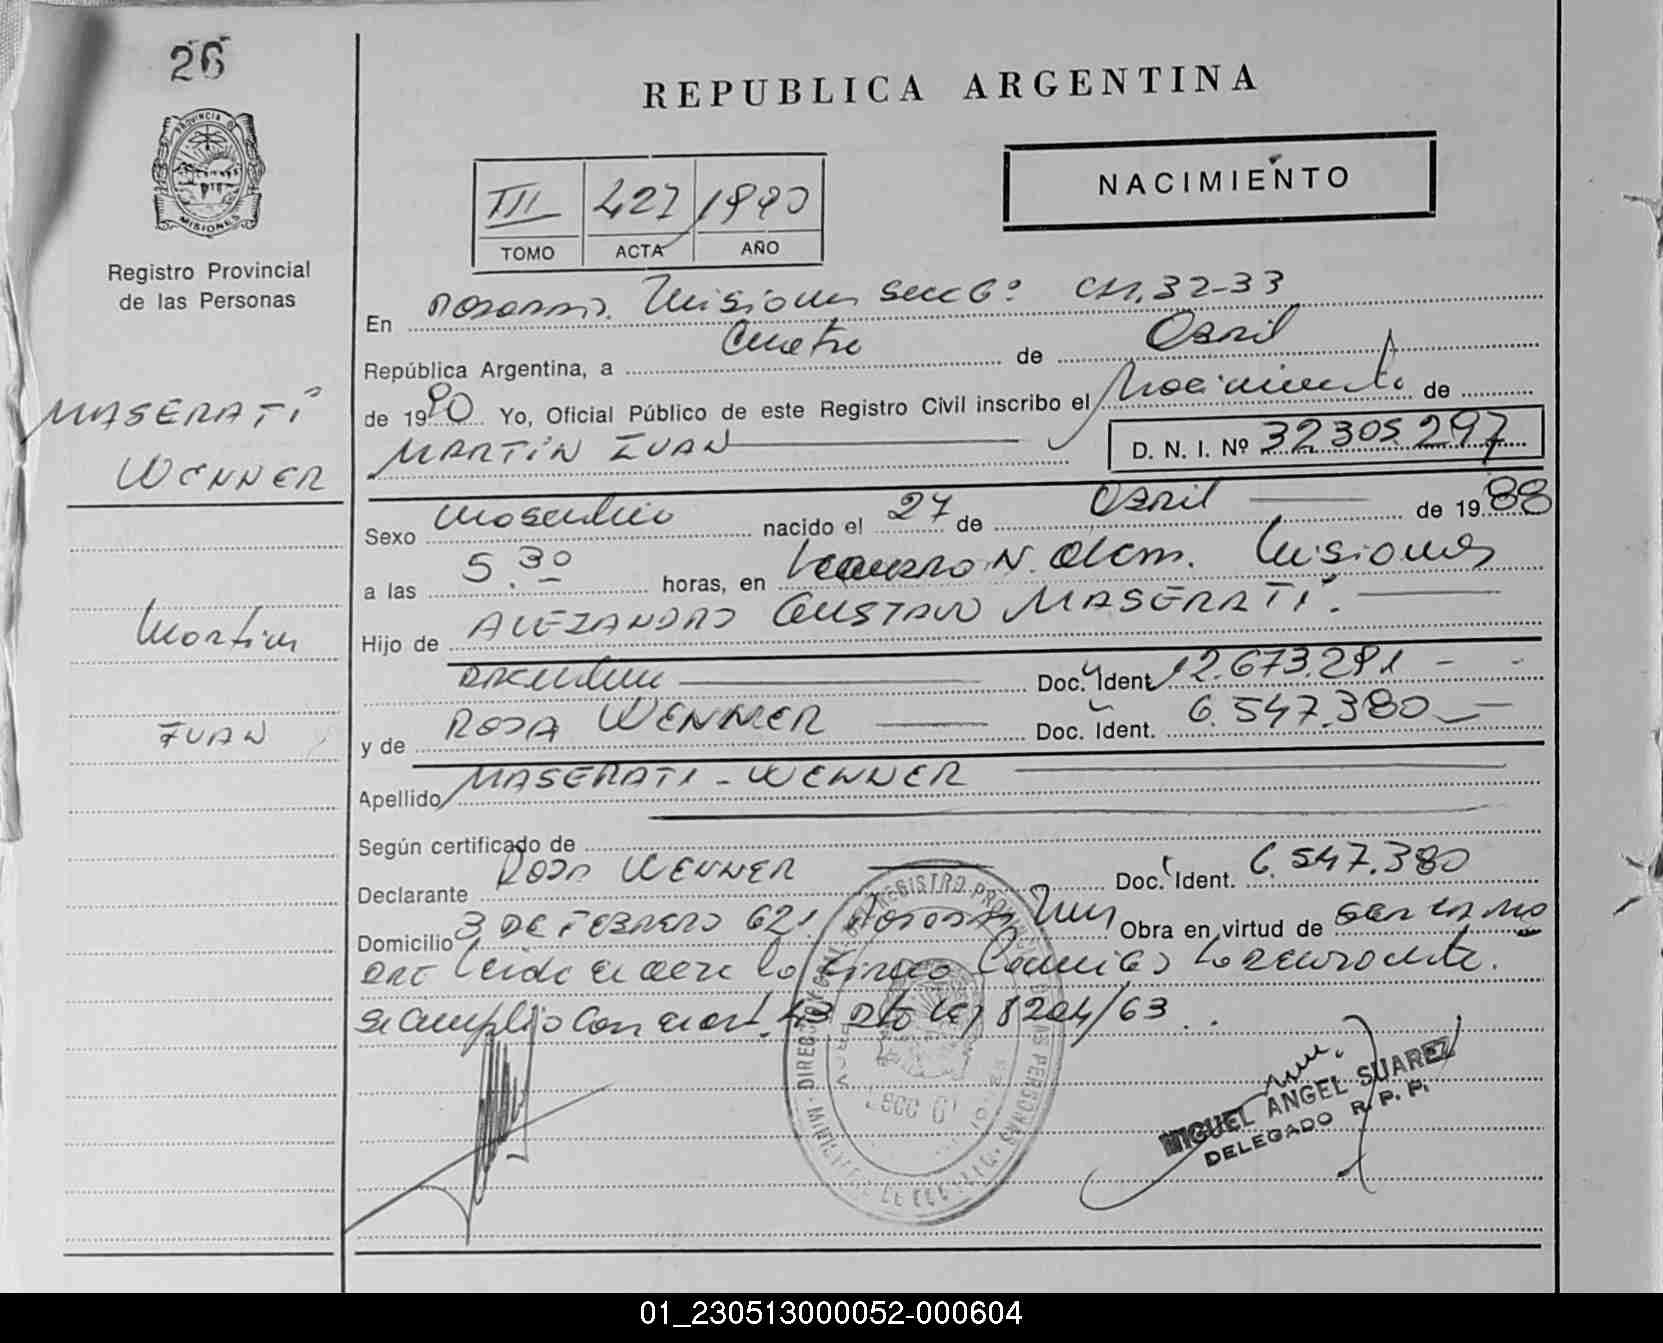 26
REPUBLICA ARGENTINA
PROVINCIA D
MISIONES
Registro Provincial
de las Personas
III 427 1990
TOMO ACTA AÑO
NACIMIENTO
MASERATI
WENNER
Martin
IVAN
En Posadas. Misiones Secc 6º CM. 32-33
República Argentina, a Cuatro de Abril
de 1990 Yo, Oficial Público de este Registro Civil inscribo el Nacimiento de
MARTIN IVAN D. N. I. Nº 32305297
Sexo Masculino nacido el 27 de Abril de 1988
a las 5.30 horas, en Leandro N. Alem. Misiones
Hijo de ALEJANDRO GUSTAVO MASERATI.
Argentino Doc. Ident. 12.673.291
y de ROSA WENNER Doc. Ident. 6.547.380
Apellido MASERATI - WENNER
Según certificado de
Declarante ROSA WENNER Doc. Ident. 6.547.380
Domicilio 3 DE FEBRERO 621. Posadas Mnes Obra en virtud de
Leida el acta la firma Conmigo la declarante.
Se cumplio con el art. 43 Dto Ley 8204/63
REGISTRO PROVINCIAL DE LAS PERSONAS
SECC 6
MIGUEL ANGEL SUAREZ
DELEGADO R. P. P.
01_230513000052-000604